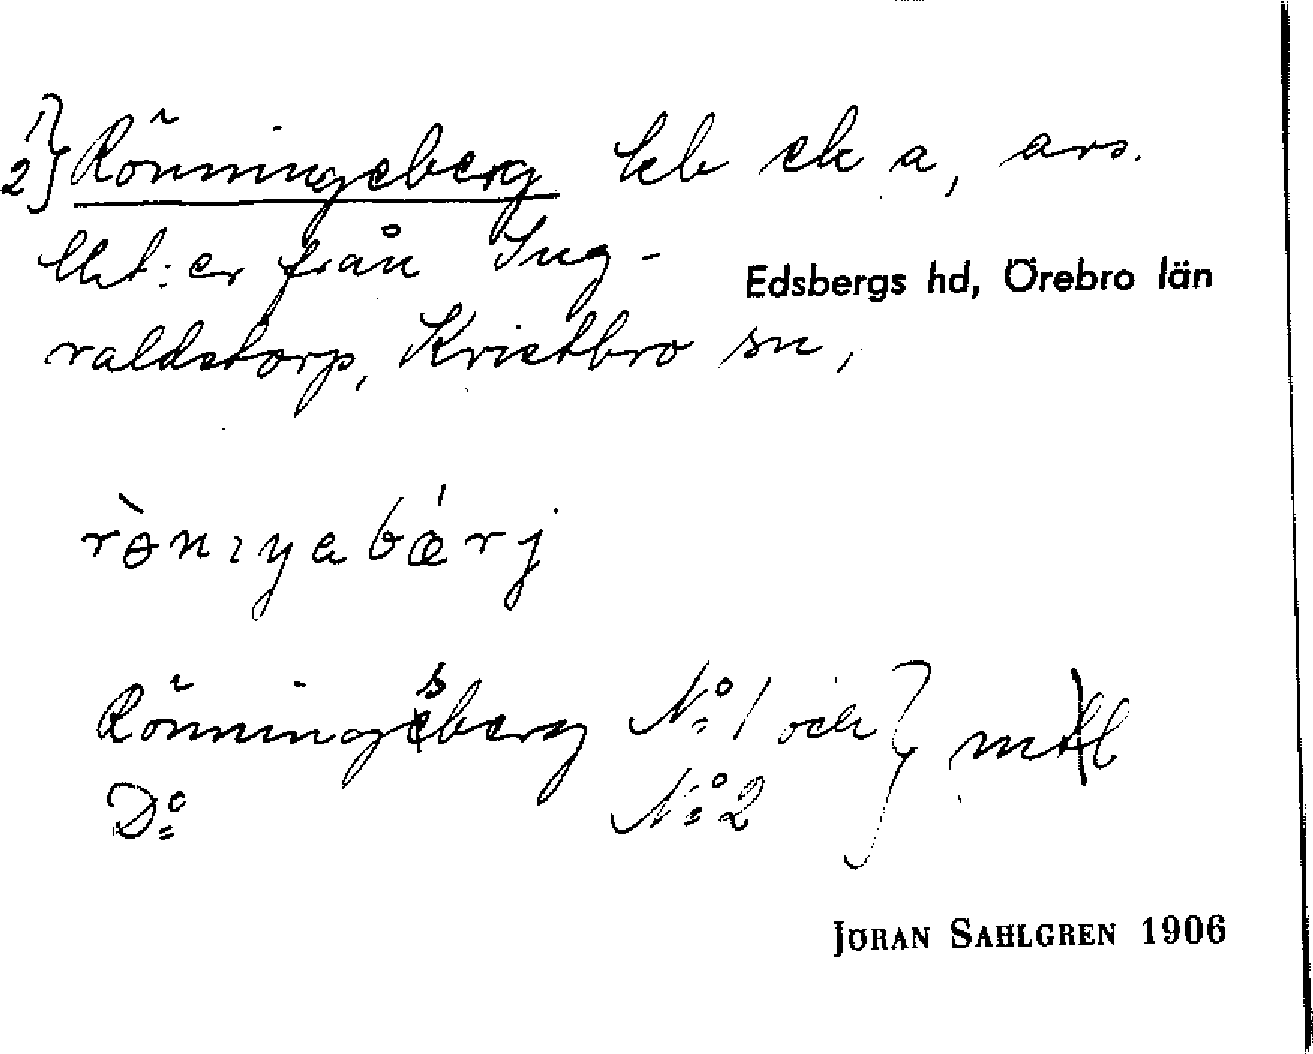 1) 2) Rönningeberg lcb ek a, avs.
lht:er från Ing-
valdstorp, Kvistbro sn,
Edsbergs hd, Örebro län
rə̀nıŋabǽrj
Rönningsberg No 1 och
Do No 2 } mtl
JÖRAN SAHLGREN 1906